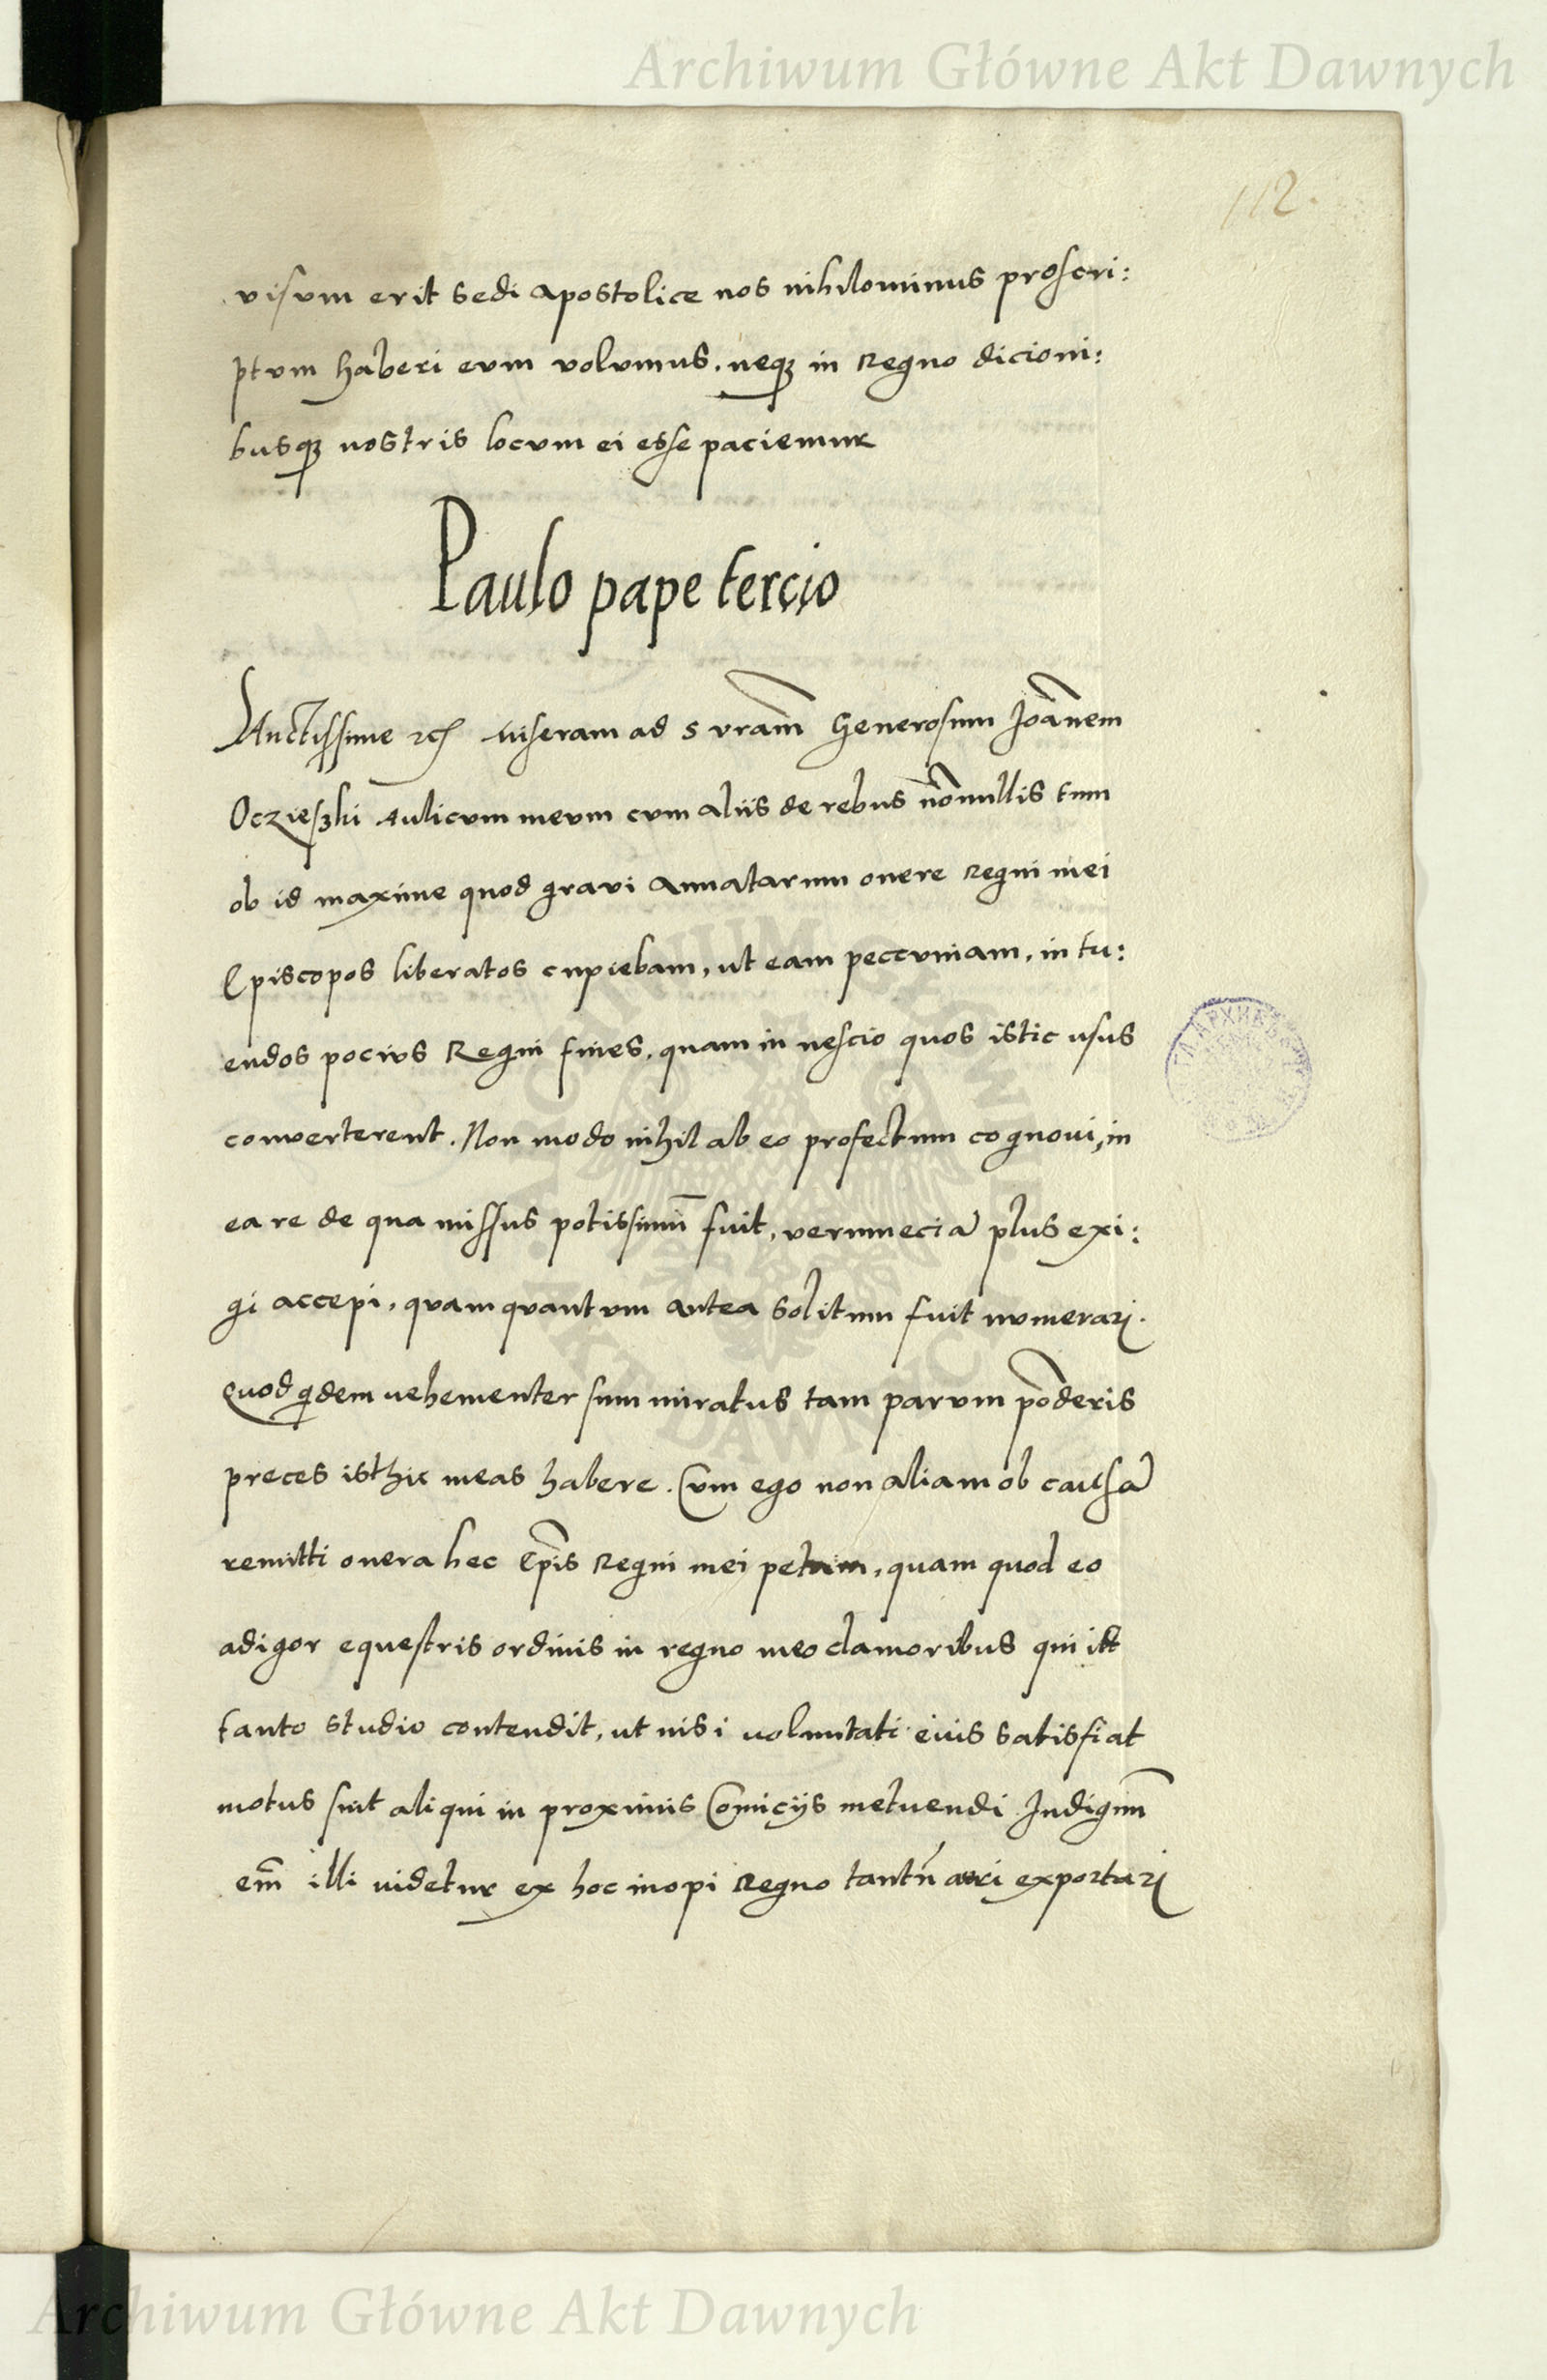 Archiwum Główne Akt Dawnych
112.
visum erit sedi apostolice nos nihilominus proscri:
ptum haberi eum volumus. neqȝ in Regno dicioni:
busqȝ nostris locum ei esse paciemur
Paulo pape tercio
miseram ad S vram̄ Generosum Joānem
Oczieszki Aulicum meum cum aliis de rebus nōnullis tum
ob id maxime quod gravi Annatarum onere Regni mei
Episcopos liberatos cupiebam, ut eam peccuniam, in tu:
endos pocius Regni fines, quam in nescio quos istic usus
converterent. Non modo nihil ab eo profectum cognovi, in
ea re de qua missus potissimū fuit, verum eciā plus exi:
gi accepi, quam quantum antea solitum fuit numerari.
Quod qdem vehementer sum miratus tam parum pōderis
preces isthic meas habere. Cum ego non aliam ob causā
remitti onera hec Ep̄is Regni mei petam, quam quod eo
adigor equestris ordinis in regno meo clamoribus qui
tanto studio contendit, ut nisi voluntati eius satisfiat
motus sint aliqui in proximis Comiciis metuendi Indignū
em̄ illi videtur ex hoc inopi Regno tantū auri exportari
Archiwum Główne Akt Dawnych